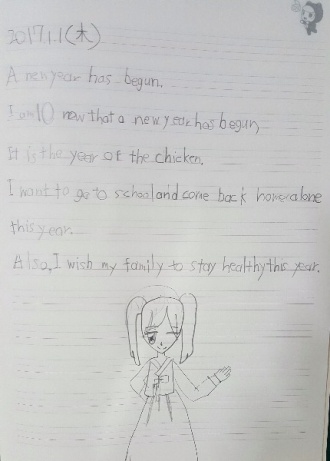 2017.1.1(木)
A new year has begun.
I am 10 now that a new year has begun,
It is the year of the chicken.
I want to go to school and come back home alone
this year.
Also, I wish my family to stay healthy this year.